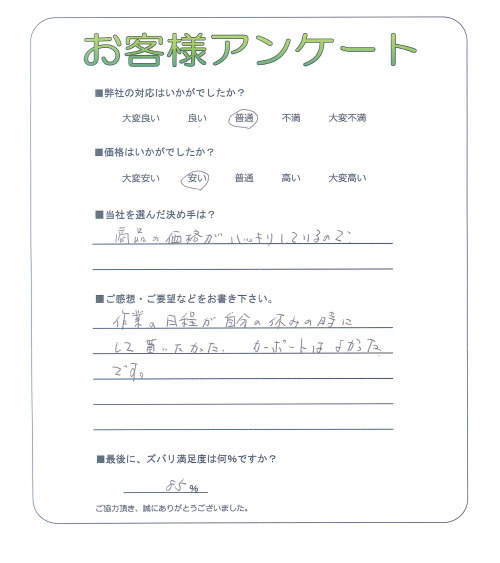 お客様アンケート
■弊社の対応はいかがでしたか？
大変良い 良い 普通 不満 大変不満
■価格はいかがでしたか？
大変安い 安い 普通 高い 大変高い
■当社を選んだ決め手は？
商品の価格がハッキリしているので。
■ご感想・ご要望などをお書き下さい。
作業の日程が自分の休みの時に
して貰いたかった。カーポートはよかった
です。
■最後に、ズバリ満足度は何％ですか？
85％
ご協力頂き、誠にありがとうございました。